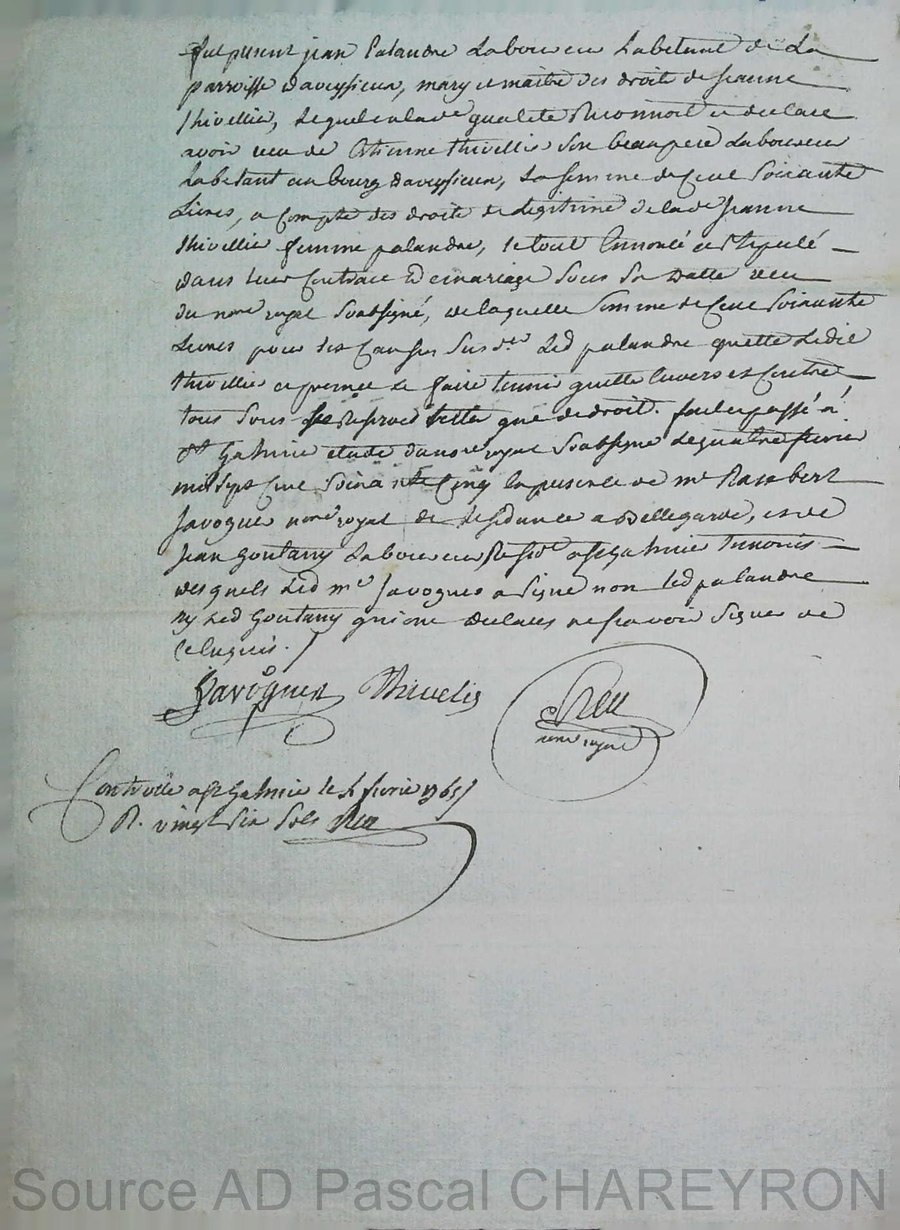 fut present jean Palandre Laboureur habitant de La
parroisse daveyssieux, mary et maitre des droits de jeanne
thivellier, Lequel en lade qualité Reconnoit et declare
avoir reçu de Estienne thivellie son beaupere Laboureur
habitant au bourg daveyssieux, La somme de Cent soixante
Livres, a compte des droits de Legitime de lade jeanne
thivellie femme palandre, le tout Ennoncé et stipulé
dans leur Contract de mariage sous sa datte reçu
du nore royal soubsigné, de laquelle somme de Cent soixante
Livres pour les Causes susdes Led palandre quitte Ledit
thivellie et promet Le faire tenir quitte Envers et Contre
tous sous Reserves telle que de droit. fait et passé à
St Galmier etude du nore royal soubsigné Le quatre fevrier
mil sept Cent soixante Cinq En presence de me Rambert
Javogues nore royal de residance a Bellegarde, et de
jean Goutany Laboureur a St Galmier temoins
desquels Led me Javogues a signé non Led palandre
ny Led Goutany qui ont declarés ne sçavoir signer de
Ce Enquis.
Javogues Thivelie
Reu
nore royal
Controllé a St Galmier le 4 fevrier 1765
R. vingt six sols Reu
Source AD Pascal CHAREYRON